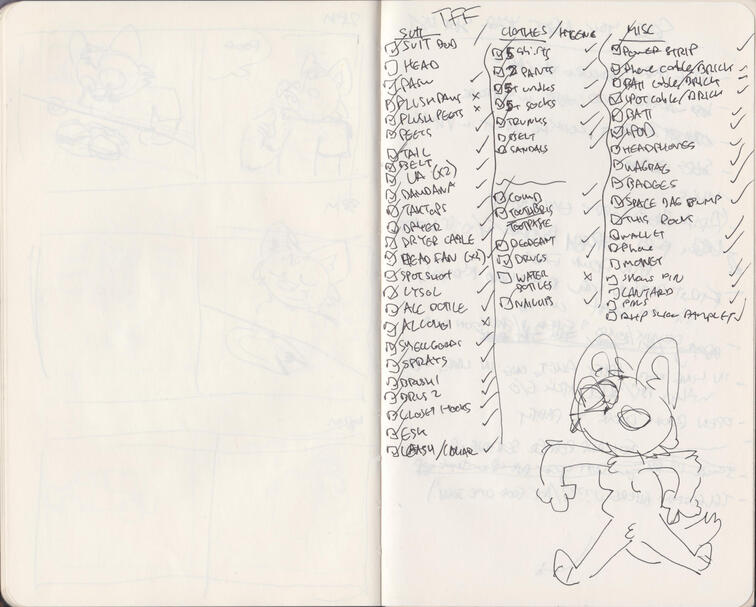 TFF
SUIT
SUIT POD
HEAD
PAW
PLUSH PAWS
PLUSH PEETS
PEETS
TAIL
BELT
UA (x2)
BANDANA
DRYER
DRYER CABLE
HEAD FAN (x2)
SPOT SHOT
LYSOL
ALC BOTTLE
ALCOHOL
SMELLGOODS
SPRAYS
BRUSH 1
BRUS 2
CLOSET HOOKS
ESK
LEASH/COLLAR
CLOTHES/HYGENE
5 shirts
2 PANTS
5+ undies
5+ socks
TRUNKS
BELT
SANDALS
COMB
TOOTHBRUS
TOOTPASTE
DEODERANT
DRUGS
WATER
BOTTLES
NAILCLIPS
MISC
POWER STRIP
Phone cable/BRICK
BATT cable/BRICK
IPOT cable/BRICK
BATT
IPOD
HEADPHONES
WAGBAG
BADGES
SPACE BAG PUMP
THIS BOOK
WALLET
Phone
MONEY
SHOW PIN
LANYARD
PILLS